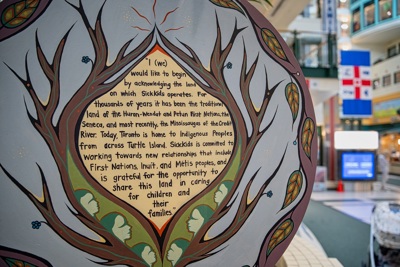 "I (we)
would like to begin
by acknowledging the land
on which SickKids operates. For
thousands of years it has been the traditional
land of the Huron-Wendat and Petun First Nations, the
Seneca, and most recently, the Mississaugas of the Credit
River. Today, Toronto is home to Indigenous Peoples
from across Turtle Island. SickKids is committed to
working towards new relationships that include
First Nations, Inuit, and Métis peoples, and
is grateful for the opportunity to
share this land in caring
for children and
their
families"